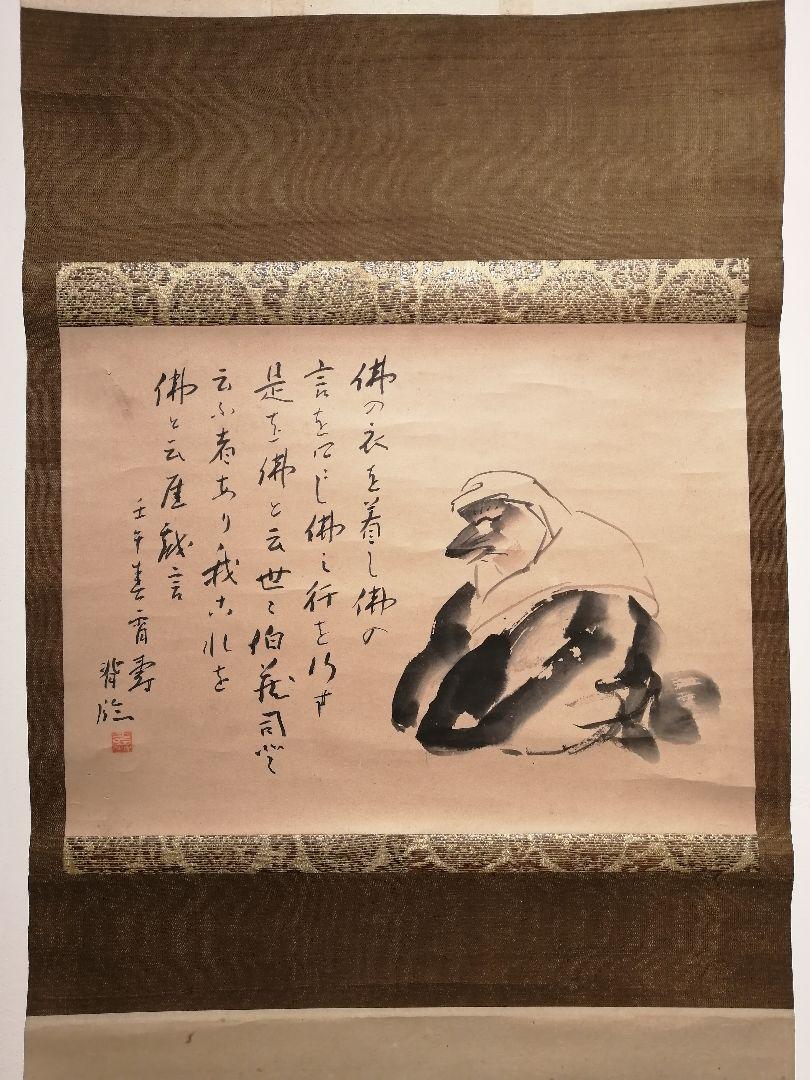 佛の衣を着し佛の
言を口にし佛之行を行す
是を佛と云世ニ伯蔵司と
云ふ者あり我これを
佛と云 戯言
壬午春 壽
臨